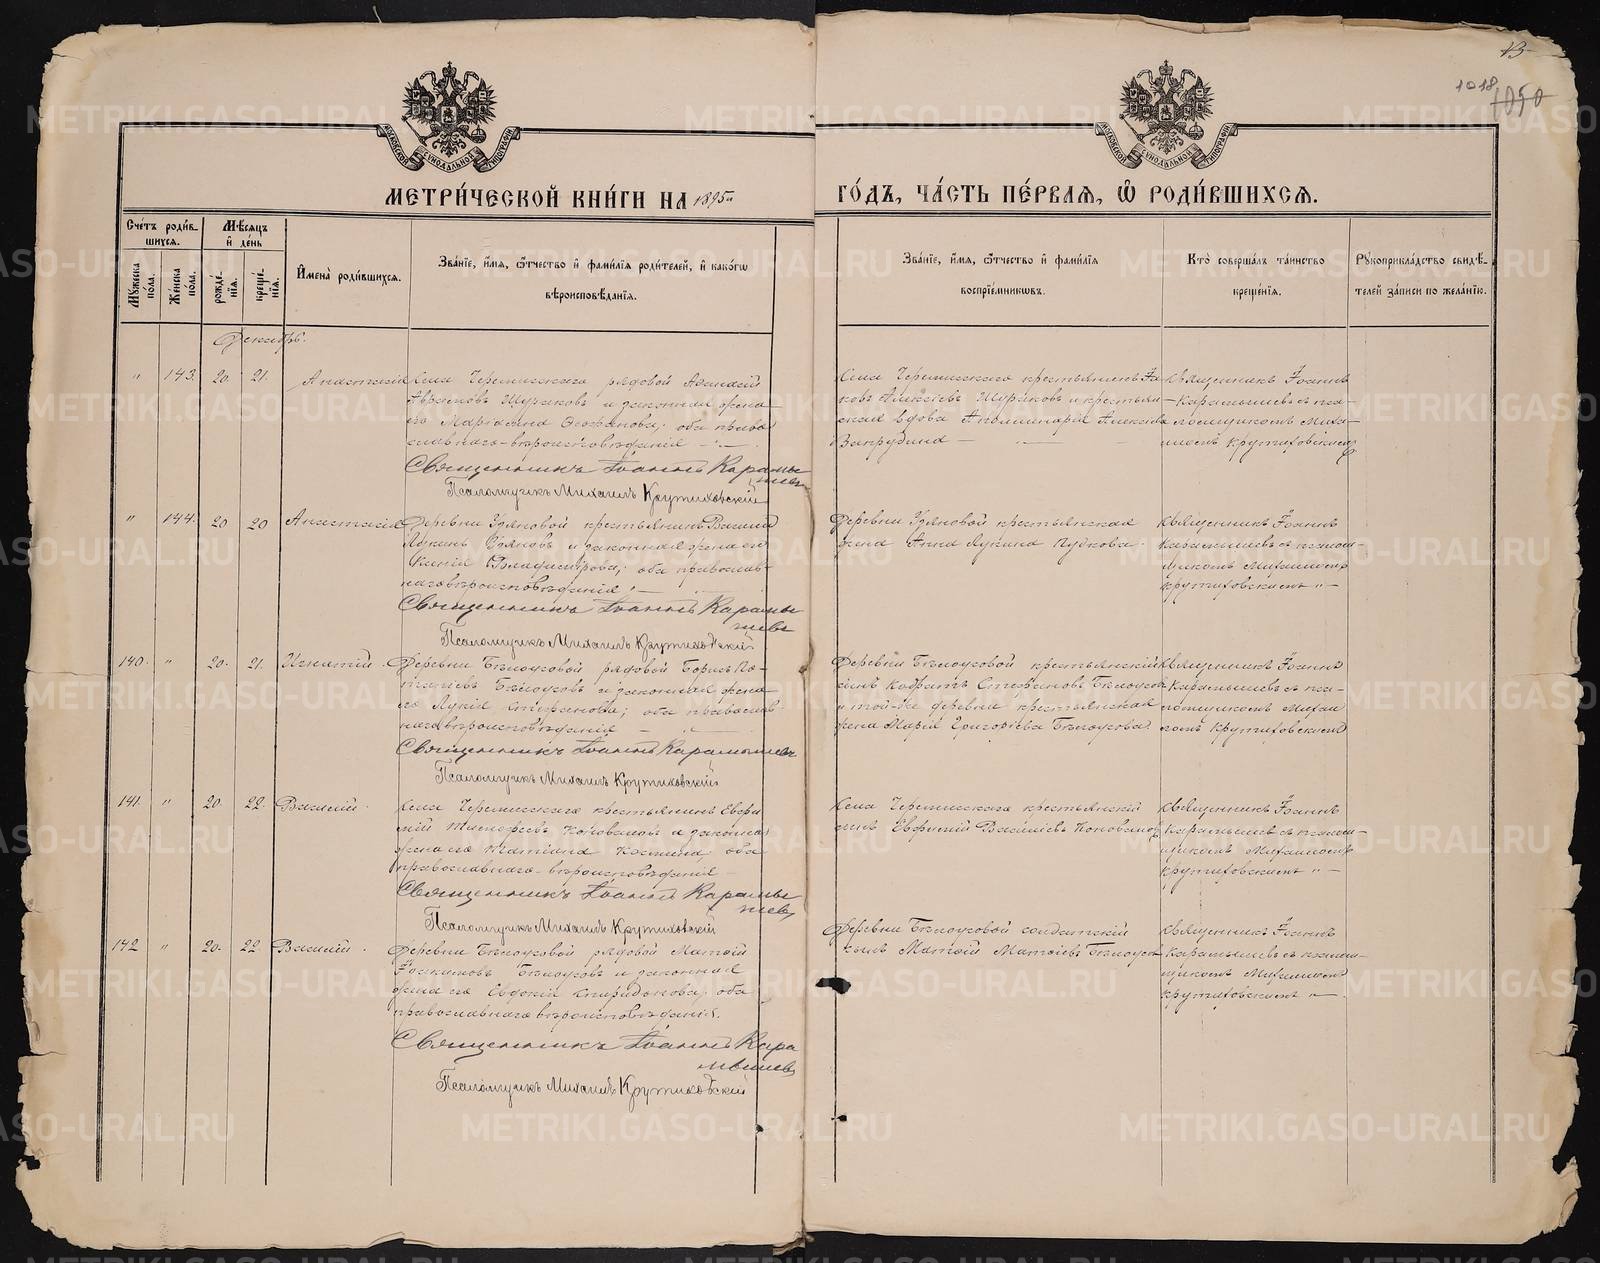 13
1018
1050
МОСКОВСКОЙ СѴНОДАЛЬНОЙ ТИПОГРАФІИ
МОСКОВСКОЙ СѴНОДАЛЬНОЙ ТИПОГРАФІИ
МЕТРИ́ЧЕСКОЙ КНИ́ГИ НА 1895й
ГО́ДЪ, ЧА́СТЬ ПЕ́РВАѦ, Ѡ РОДИ́ВШИХСѦ.
Сче́тъ роди́в-
шихсѧ.
Мѣ́сѧцъ
и҆ де́нь
Му́жеска по́ла.
Же́нска по́ла.
рожде́-
нїѧ.
креще́-
нїѧ.
И҆мена̀ роди́вшихсѧ.
Зва́нїе, и҆́мѧ, ѻ҆́тчество и҆ фами́лїѧ роди́телей, и҆ како́гѡ
вѣроисповѣ́данїѧ.
Зва́нїе, и҆́мѧ, ѻ҆́тчество и҆ фами́лїѧ
воспрїе́мникѡвъ.
Кто̀ соверша́лъ та́инство
креще́нїѧ.
Рꙋкоприкла́дство свидѣ́-
телей за́писи по жела́нїю.
Декабрь.
" 143. 20. 21.
Села Черемисскаго рядовой
и законная жена
его Маріанна Ѳеофанова; оба право
славнаго вѣроисповѣданія
Священникъ Іоаннъ Карамы
шевъ
Псаломщикъ Михаилъ Крутиховскій
Села Черемисскаго крестьянинъ
ковъ Алексѣевъ и крестьян-
ская вдова Апполинарія Алексѣева
Священникъ Іоаннъ
Карамышевъ съ пса-
ломщикомъ Миха-
иломъ Крутиховскимъ
" 144. 20 20 Анастасія
Деревни крестьянинъ
и законная жена его
Владимірова; оба православ-
наго вѣроисповѣданія
Священникъ Іоаннъ Карамы
шевъ
Псаломщикъ Михаилъ Крутиховскій
Деревни крестьянская
жена Анна
Священникъ Іоаннъ
Карамышевъ съ псалом-
щикомъ Михаиломъ
Крутиховскимъ
140. " 20. 21. Игнатій.
Деревни Бѣлоусовой рядовой Борисъ По-
таповъ Бѣлоусовъ и законная жена
его Лукія Стефанова; оба православ-
наго вѣроисповѣданія
Священникъ Іоаннъ Карамышевъ
Псаломщикъ Михаилъ Крутиховскій
Деревни Бѣлоусовой крестьянскій
сынъ Кодратъ Стефановъ Бѣлоусовъ
и той-же деревни крестьянская
жена Марія Григоріева Бѣлоусова.
Священникъ Іоаннъ
Карамышевъ съ пса-
ломщикомъ Михаи
ломъ Крутиховскимъ
141. " 20. 22. Василій.
Села Черемисскаго крестьянинъ Евѳи
мій Коноваловъ и законная
жена его Татіана Косьмина; оба
православнаго вѣроисповѣданія
Священникъ Іоаннъ Карамы
шевъ
Псаломщикъ Михаилъ Крутиховскій
Села Черемисскаго крестьянскій
сынъ Евѳимій Василіевъ Коноваловъ
Священникъ Іоаннъ
Карамышевъ съ псалом-
щикомъ Михаиломъ
Крутиховскимъ
142 " 20. 22. Василій.
Деревни Бѣлоусовой рядовой Матѳій
Іоакимовъ Бѣлоусовъ и законная
жена его Евдокія Спиридонова; оба
православнаго вѣроисповѣданія.
Священникъ Іоаннъ Кара
мышевъ
Псаломщикъ Михаилъ Крутиховскій
Деревни Бѣлоусовой солдатскій
сынъ Матѳій Матѳіевъ Бѣлоусовъ
Священникъ Іоаннъ
Карамышевъ съ псалом-
щикомъ Михаиломъ
Крутиховскимъ
METRIKI.GASO-URAL.RU